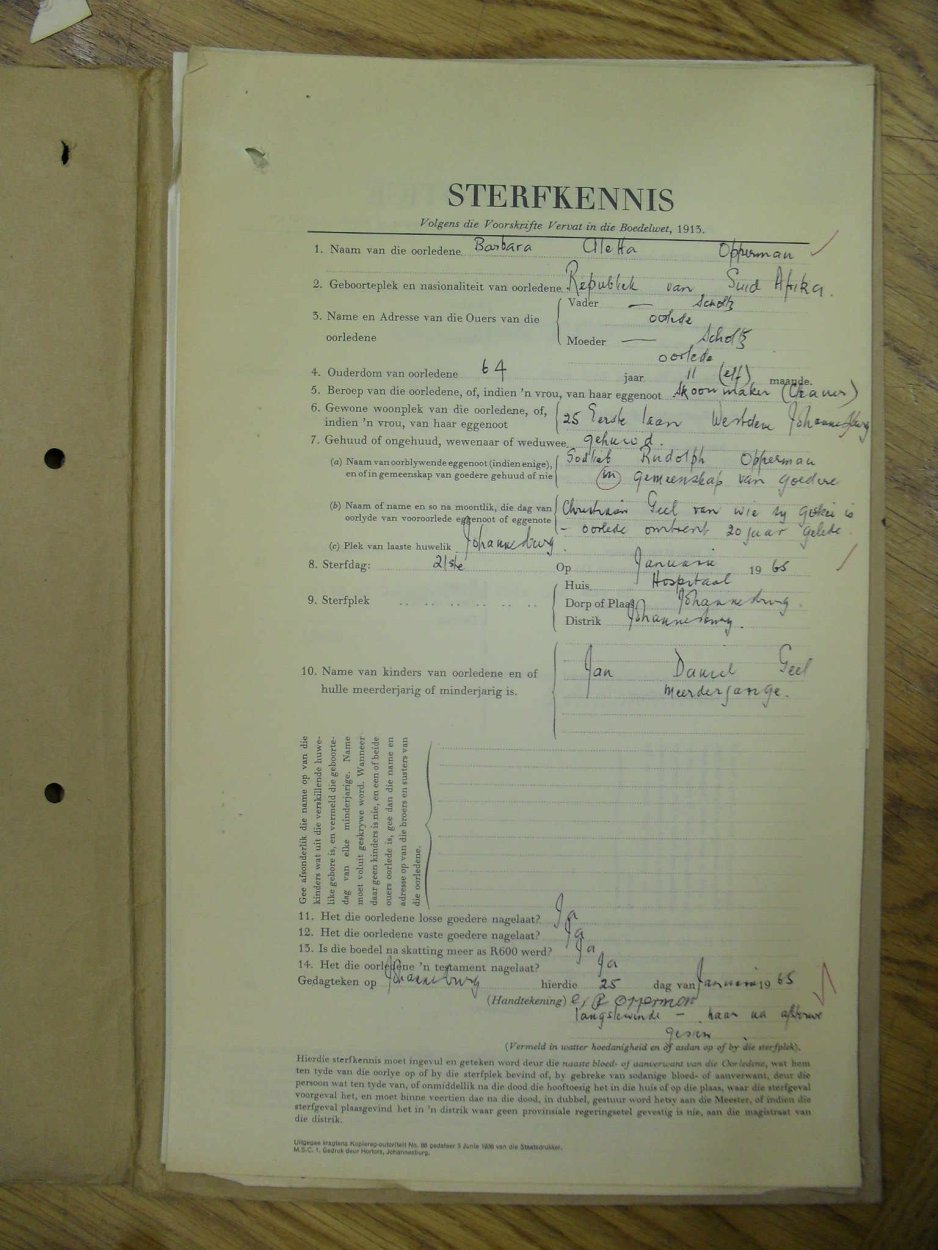 STERFKENNIS
Volgens die Voorskrifte Vervat in die Boedelwet, 1913.
1. Naam van die oorledene Barbara Aletta Opperman
2. Geboorteplek en nasionaliteit van oorledene Republiek van Suid Afrika.
3. Name en Adresse van die Ouers van die oorledene
Vader — Scholtz
oorlede
Moeder — Scholtz
oorlede
4. Ouderdom van oorledene 64 jaar 11 (elf) maande.
5. Beroep van die oorledene, of, indien 'n vrou, van haar eggenoot skoonmaker (Cleaner)
6. Gewone woonplek van die oorledene, of,
indien 'n vrou, van haar eggenoot 25 Eerste laan Westdene Johannesburg
7. Gehuud of ongehuud, wewenaar of weduwee gehuud.
(a) Naam van oorblywende eggenoot (indien enige),
en of in gemeenskap van goedere gehuud of nie
Godlieb Rudolph Opperman
in gemeenskap van goedere
(b) Naam of name en so na moontlik, die dag van
oorlyde van vooroorlede eggenoot of eggenote
Christiaan Geel van wie sy geskei is
– oorlede omtrent 20 jaar gelede
(c) Plek van laaste huwelik Johannesburg.
8. Sterfdag: 21ste Op Januarie 1965
9. Sterfplek
Huis Hospitaal
Dorp of Plaas Johannesburg.
Distrik Johannesburg.
10. Name van kinders van oorledene en of
hulle meerderjarig of minderjarig is.
Jan Daniel Geel
Meerderjarige.
Gee afsonderlik die name op van die
kinders wat uit die verskillende huwe-
like gebore is, en vermeld die geboorte-
dag van elke minderjarige. Name
moet voluit geskrywe word. Wanneer
daar geen kinders is nie, en een of beide
ouers oorlede is, gee dan die name en
adresse op van die broers en susters van
die oorledene.
11. Het die oorledene losse goedere nagelaat? Ja
12. Het die oorledene vaste goedere nagelaat? Ja
13. Is die boedel na skatting meer as R600 werd? Ja
14. Het die oorledene 'n testament nagelaat? Ja
Gedagteken op Johannesburg hierdie 25 dag van Januarie 1965
(Handtekening) Opperman
langslewende – haar na afsterwe
gesien.
(Vermeld in watter hoedanigheid en of asdan op of by die sterfplek).
Hierdie sterfkennis moet ingevul en geteken word deur die naaste bloed- of aanverwant van die Oorledene, wat hem
ten tyde van die oorlye op of by die sterfplek bevind of, by gebreke van sodanige bloed- of aanverwant, deur die
persoon wat ten tyde van, of onmiddellik na die dood die hooftoesig het in die huis of op die plaas, waar die sterfgeval
voorgeval het, en moet binne veertien dae na die dood, in dubbel, gestuur word hetsy aan die Meester, of indien die
sterfgeval plaasgevind het in 'n distrik waar geen provinsiale regeringsetel gevestig is nie, aan die magistraat van
die distrik.
Uitgegee kragtens Kopiereg-outoriteit No. 86 gedateer 3 Junie 1936 van die Staatsdrukker.
M.S.C. 1. Gedruk deur Hortors, Johannesburg.